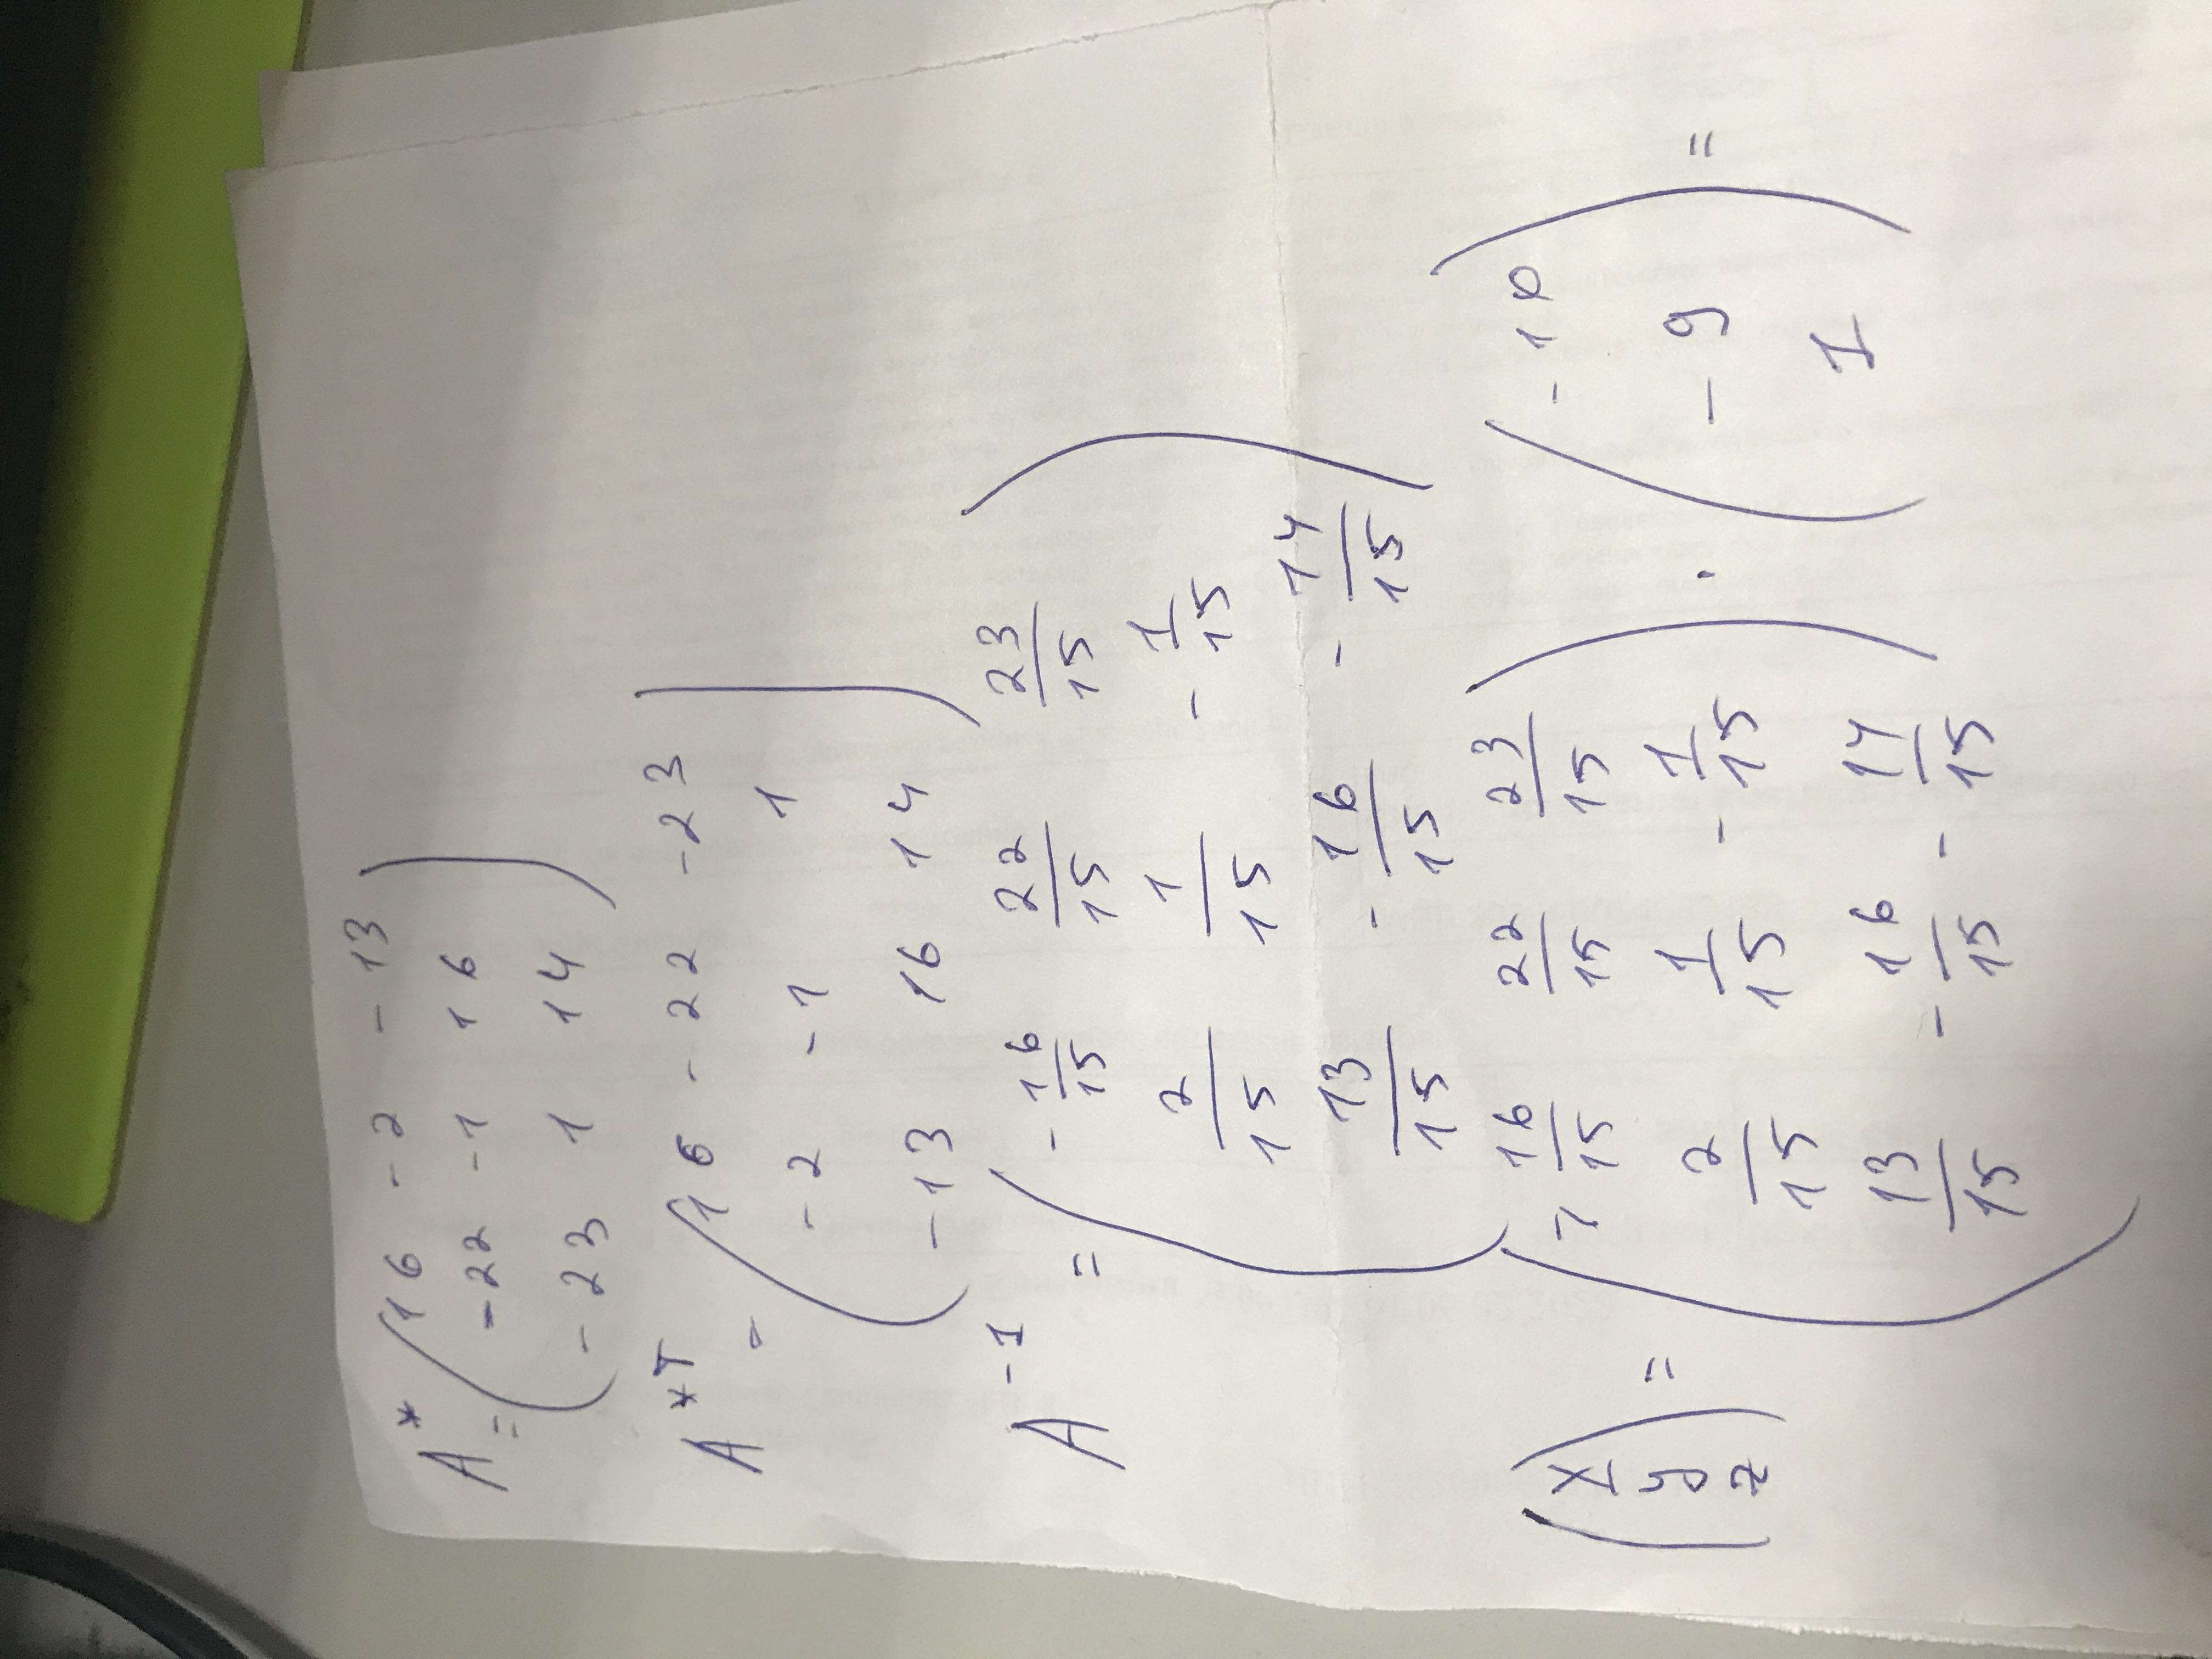 A* = (16 -2 -13)
-22 -1 16
-23 1 14
A*T = (16 -22 -23)
-2 -1 1
-13 16 14
A-1 = (-16/15 22/15 23/15)
2/15 1/15 -1/15
13/15 -16/15 -14/15
(x y z) = (-16/15 22/15 23/15) · (-10) =
2/15 1/15 -1/15 -9
13/15 -16/15 -14/15 1